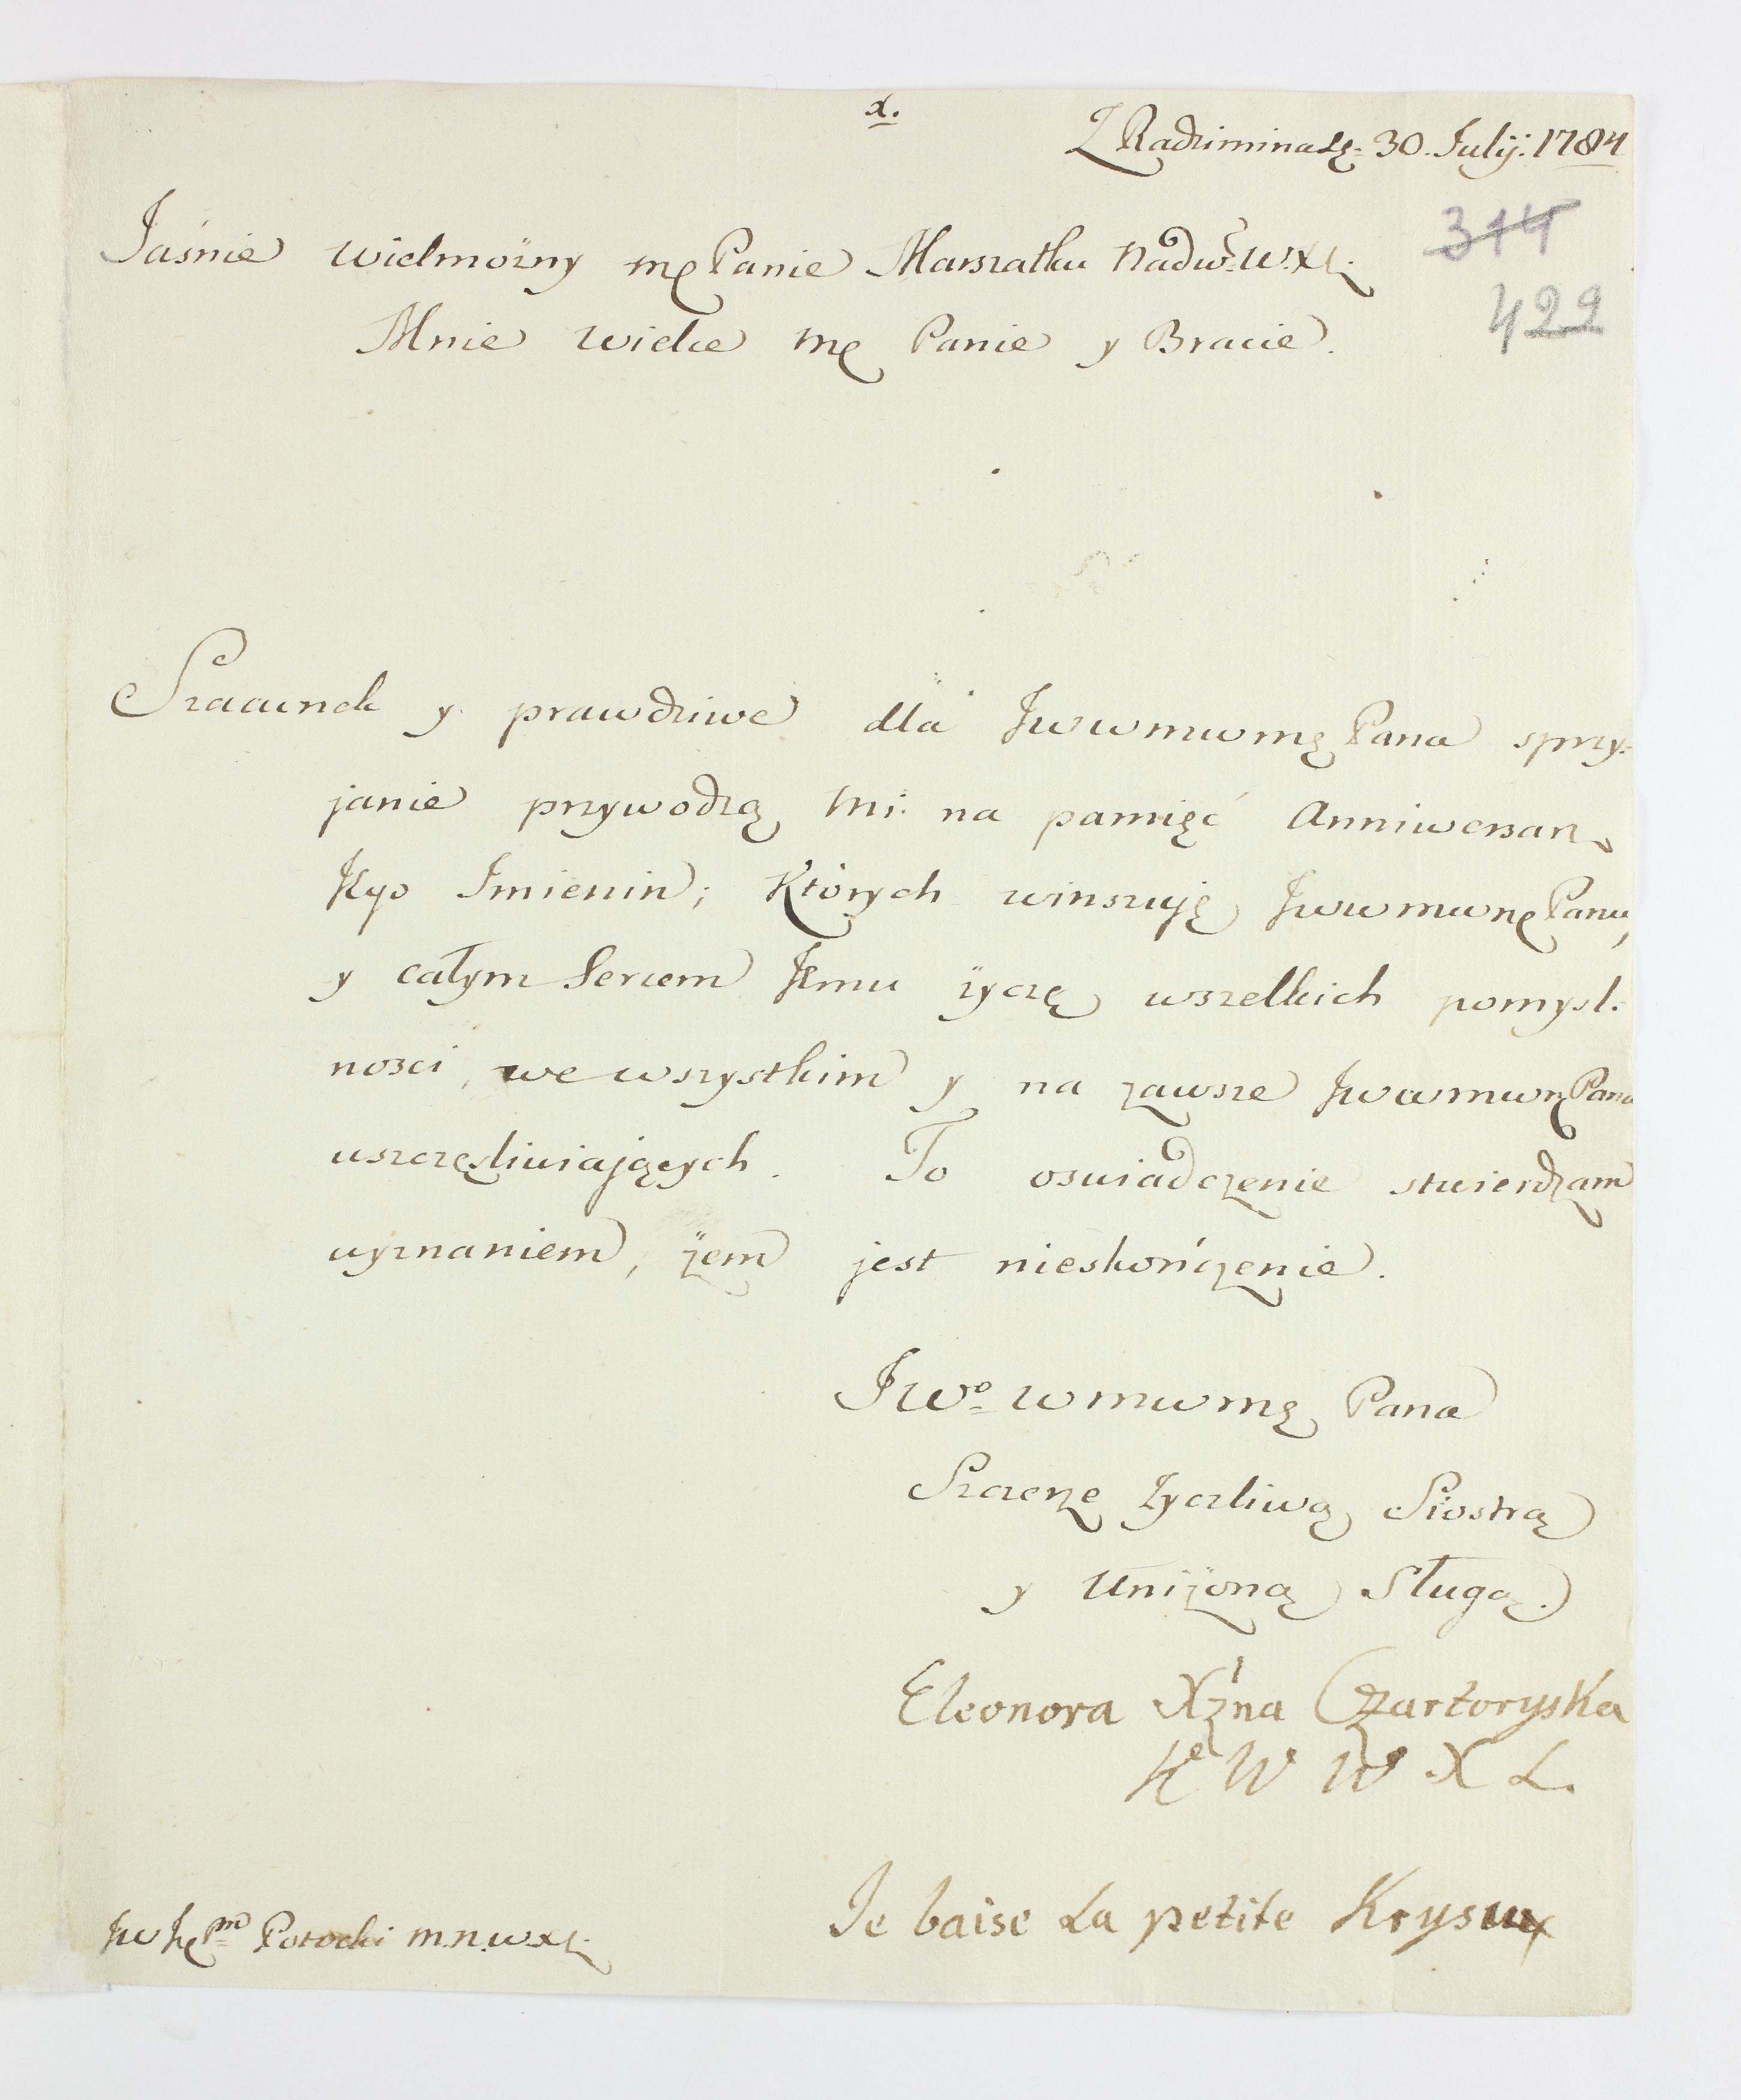 x.
Z Radzimina dg: 30. Julij: 1784
314
Jaśnie Wielmożny mę Panie Marszałku Nadw: W.X.L.
422
Mnie Wielce mę Panie y Bracie.
Szacunek y prawdziwe dla JWWMWMę Pana sprzy:
janie przywodzą mi na pamięć Anniwersarz
Jego Imienin; Których winszuję JWWMWMę Panu,
y całym Sercem Jemu życzę wszelkich pomysl:
nosci, we wszystkim y na zawsze JWWMWMę Pana
uszczęsliwiających. To oswiadczenie stwierdzam
wyznaniem, żem jest nieskończenie.
JWo WMWMę Pana
Szczerze życzliwą Siostrą
y Uniżoną Sługą.
Eleonora Xżna Czartoryska
K W W X L.
Je baise La petite Krysu
JW Potocki M.N.W.X.L.